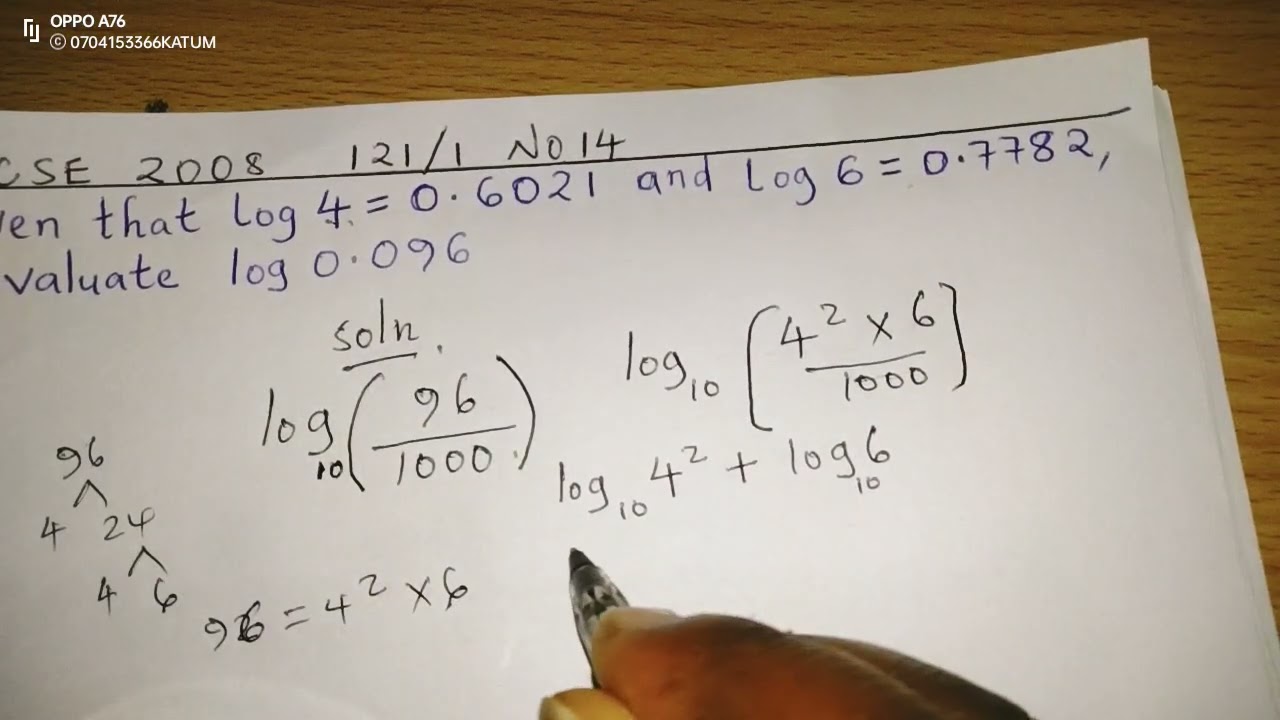 OPPO A76
© 0704153366KATUM
CSE 2008 121/1 No 14
en that log 4 = 0.6021 and log 6 = 0.7782,
valuate log 0.096
soln.
log₁₀(96/1000)
log₁₀[4² × 6/1000]
log₁₀4² + log₁₀6
96
4 24
4 6
96 = 4² × 6